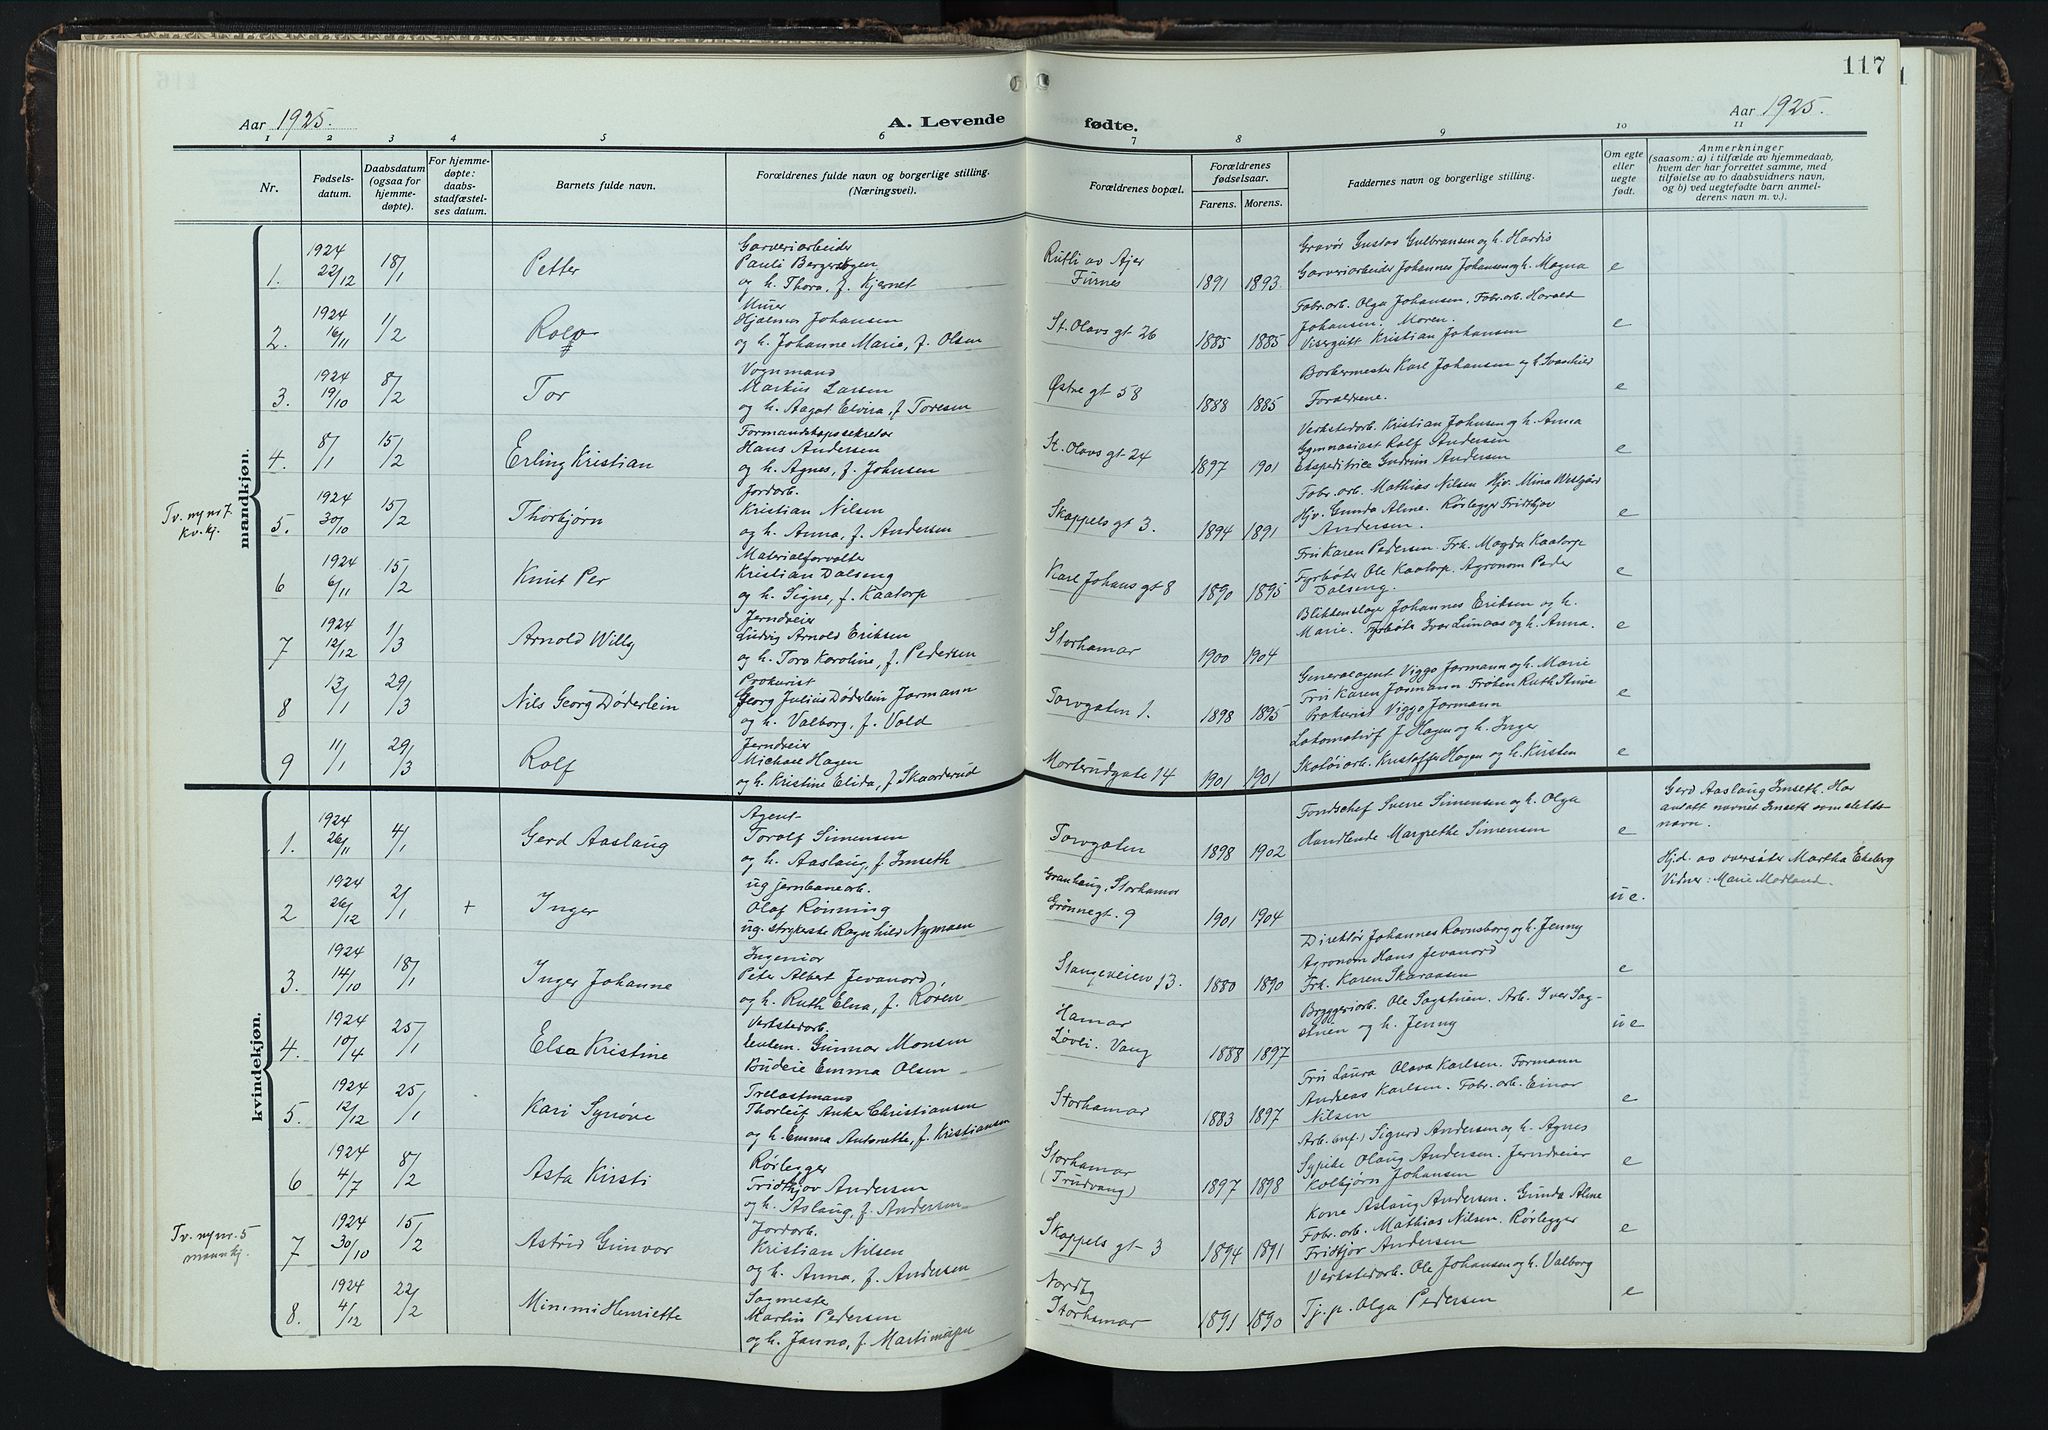 117
Aar 1925.
A. Levende fødte.
Aar 1925.
1 2 3 4 5 6 7 8 9 10 11
Nr.
Fødsels-
datum.
Daabsdatum
(ogsaa for
hjemme-
døpte).
For hjemme-
døpte:
daabs-
stadfæstel-
ses datum.
Barnets fulde navn.
Forældrenes fulde navn og borgerlige stilling.
(Næringsvei).
Forældrenes bopæl.
Forældrenes
fødselsaar.
Farens. Morens.
Faddernes navn og borgerlige stilling.
Om egte
eller
uegte
født.
Anmerkninger
(saasom: a) i tilfælde av hjemmedaab,
hvem der har forrettet samme, med
tilføielse av to daabsvidners navn,
og b) ved uegtefødte barn anmel-
derens navn m. v.).
mandkjøn.
1. 1924 22/12 18/1 Petter
Garveriarbeider
Pauli Bergerengen
og h. Thora, f. Kjernet
Rutli av Ajer
Furnes
1891 1893
Gravør Gustav Gulbransen og h. Hardis
Garveriarbeider Johannes Johansen og h. Magna
e
2. 1924 16/11 1/2 Rolf
Murer
Hjalmar Johansen
og h. Johanne Marie, f. Olsen
St. Olavs gt 26
1885 1885
Fabr.arb. Olga Johansen, Fabr.arb. Harald
Johansen. Moren.
Visergutt Kristian Johansen
e
3. 1924 19/10 8/2 Tor
Vognmand
Markus Larsen
og h. Aagot Elvira, f. Toresen
Østre gt 58
1888 1885
Barbermester Karl Johansen og h Svanhild
Foraldrene.
e
4. 8/1 15/2 Erling Kristian
Formandskapssekretær
Hans Andersen
og h. Agnes, f. Johnsen
St. Olavs gt 24
1897 1901
Verkstedarb. Kristian Johnsen og h. Anna
Gymnasiast Rolf Andersen
Ekspeditrice Gudrun Andersen
e
Tv. ny nr 7.
kv. kj.
5. 1924 30/10 15/2 Thorbjørn
Jordarb.
Kristian Nilsen
og h. Anna, f. Andersen
Skappels gt 3.
1894 1891
Fabr.arb. Mathias Nilsen Hjv. Mina Westgård
Hjv. Gunda Alme. Rørlegger Fridtjov
Andersen.
e
6 1924 6/11 15/2 Knut Per
Materialforvalter
Kristian Dalseng
og h. Signe, f. Kaatorp
Karl Johans gt 8
1890 1895
Fru Karen Pedersen. Frk. Magda Kaatorp
Fyrbøter Ole Kaatorp. Agronom Peder
Dalseng.
e
7 1924 12/12 1/3 Arnold Willy
Jerndreier
Ludvig Arnold Eriksen
og h. Tora Karoline, f. Pedersen
Storhamar
1900 1904
Blikkenslager Johannes Eriksen og h.
Marie. Fyrbøter Ivar Lunaas og h. Anna.
e
8 13/1 29/3 Nils Georg Døderlein
Prokurist
Georg Julius Døderlein Jormann
og h. Valborg, f. Vold
Torvgaten 1.
1898 1895
Generalagent Viggo Jormann og h. Marie
Fru Karen Jormann Frøken Ruth Stuve
Prokurist Viggo Jormann
e
9 11/1 29/3 Rolf
Jerndreier
Michael Hagen
og h. Kristine Elida, f. Skaarderud
Morterudgate 14
1901 1901
Lokomotivf J Hagen og h. Inger
Skotøiarb. Kristoffer Hagen og h. Kirsten
e
kvindekjøn.
1. 1924 26/11 4/1 Gerd Aaslaug
Agent
Toralf Simensen
og h. Aaslaug, f. Imseth
Torvgaten
1898 1902
Fondschef Sverre Simensen og h. Olga
Handlende Margrethe Simensen
e
Gerd Aaslaug Imseth. Har
antatt navnet Imseth som slekts-
navn.
2 1924 26/12 2/1 + Inger
ug jernbanearb.
Olaf Rønning
ug. strykeske Ragnhild Nymoen
Granhaug, Storhamar
Grønnegt. 9
1901 1904
ue.
Hj.d. av oversøster Martha Ekeberg
Vidner: Marie Morland.
3. 1924 14/10 18/1 Inger Johanne
Ingeniør
Peter Albert Jevanord,
og h. Ruth Elna, f. Røren
Stangeveien 13.
1880 1890
Direktør Johannes Ravnsborg og h. Jenny
Agronom Hans Jevanord
Frk. Karen Skaraasen
e
4. 1924 10/4 25/1 Elsa Kristine
Verkstedarb.
Gunnar Monsen
Budeie Emma Olsen
Hamar
Løvli. Vang
1888 1897
Bryggeriarb. Ole Sagstuen. Arb. Iver Sag-
stuen og h. Jenny
ue
5. 1924 12/12 25/1 Kari Synøve
Trelastmand
Thorleif Anker Christiansen
og h. Emma Antonette, f. Kristiansen
Storhamar
1883 1897
Fru Laura Olava Karlsen. Formann
Andreas Karlsen. Fabr.arb. Einar
Nilsen
e
6 1924 4/7 8/2 Asta Kirsti
Rørlegger
Fridthjov Andersen
og h. Aslaug, f. Andersen
Storhamar
(Trudvang)
1897 1898
Arb. (mf.) Sigurd Andersen og h. Agnes
Sypike Olaug Andersen. Jerndreier
Kolbjørn Johansen
e
Tv. ny nr. 5
mannkj.
7 1924 30/10 15/2 Astrid Gunvor
Jordarb.
Kristian Nilsen
og h. Anna, f. Andersen
Skappels gt 3
1894 1891
Kone Aslaug Andersen. Gunda Alme
Fabr. arb. Mathias Nilsen. Rørlegger
Fridtjov Andersen
e
8. 1924 4/12 22/2 Mimmi Henriette
Sagmester
Martin Pedersen
og h. Janna, f. Martinsen
Nordby
Storhamar
1891 1890
Verkstedarb. Ole Johansen og h. Valborg
Tj. p. Olga Pedersen
e